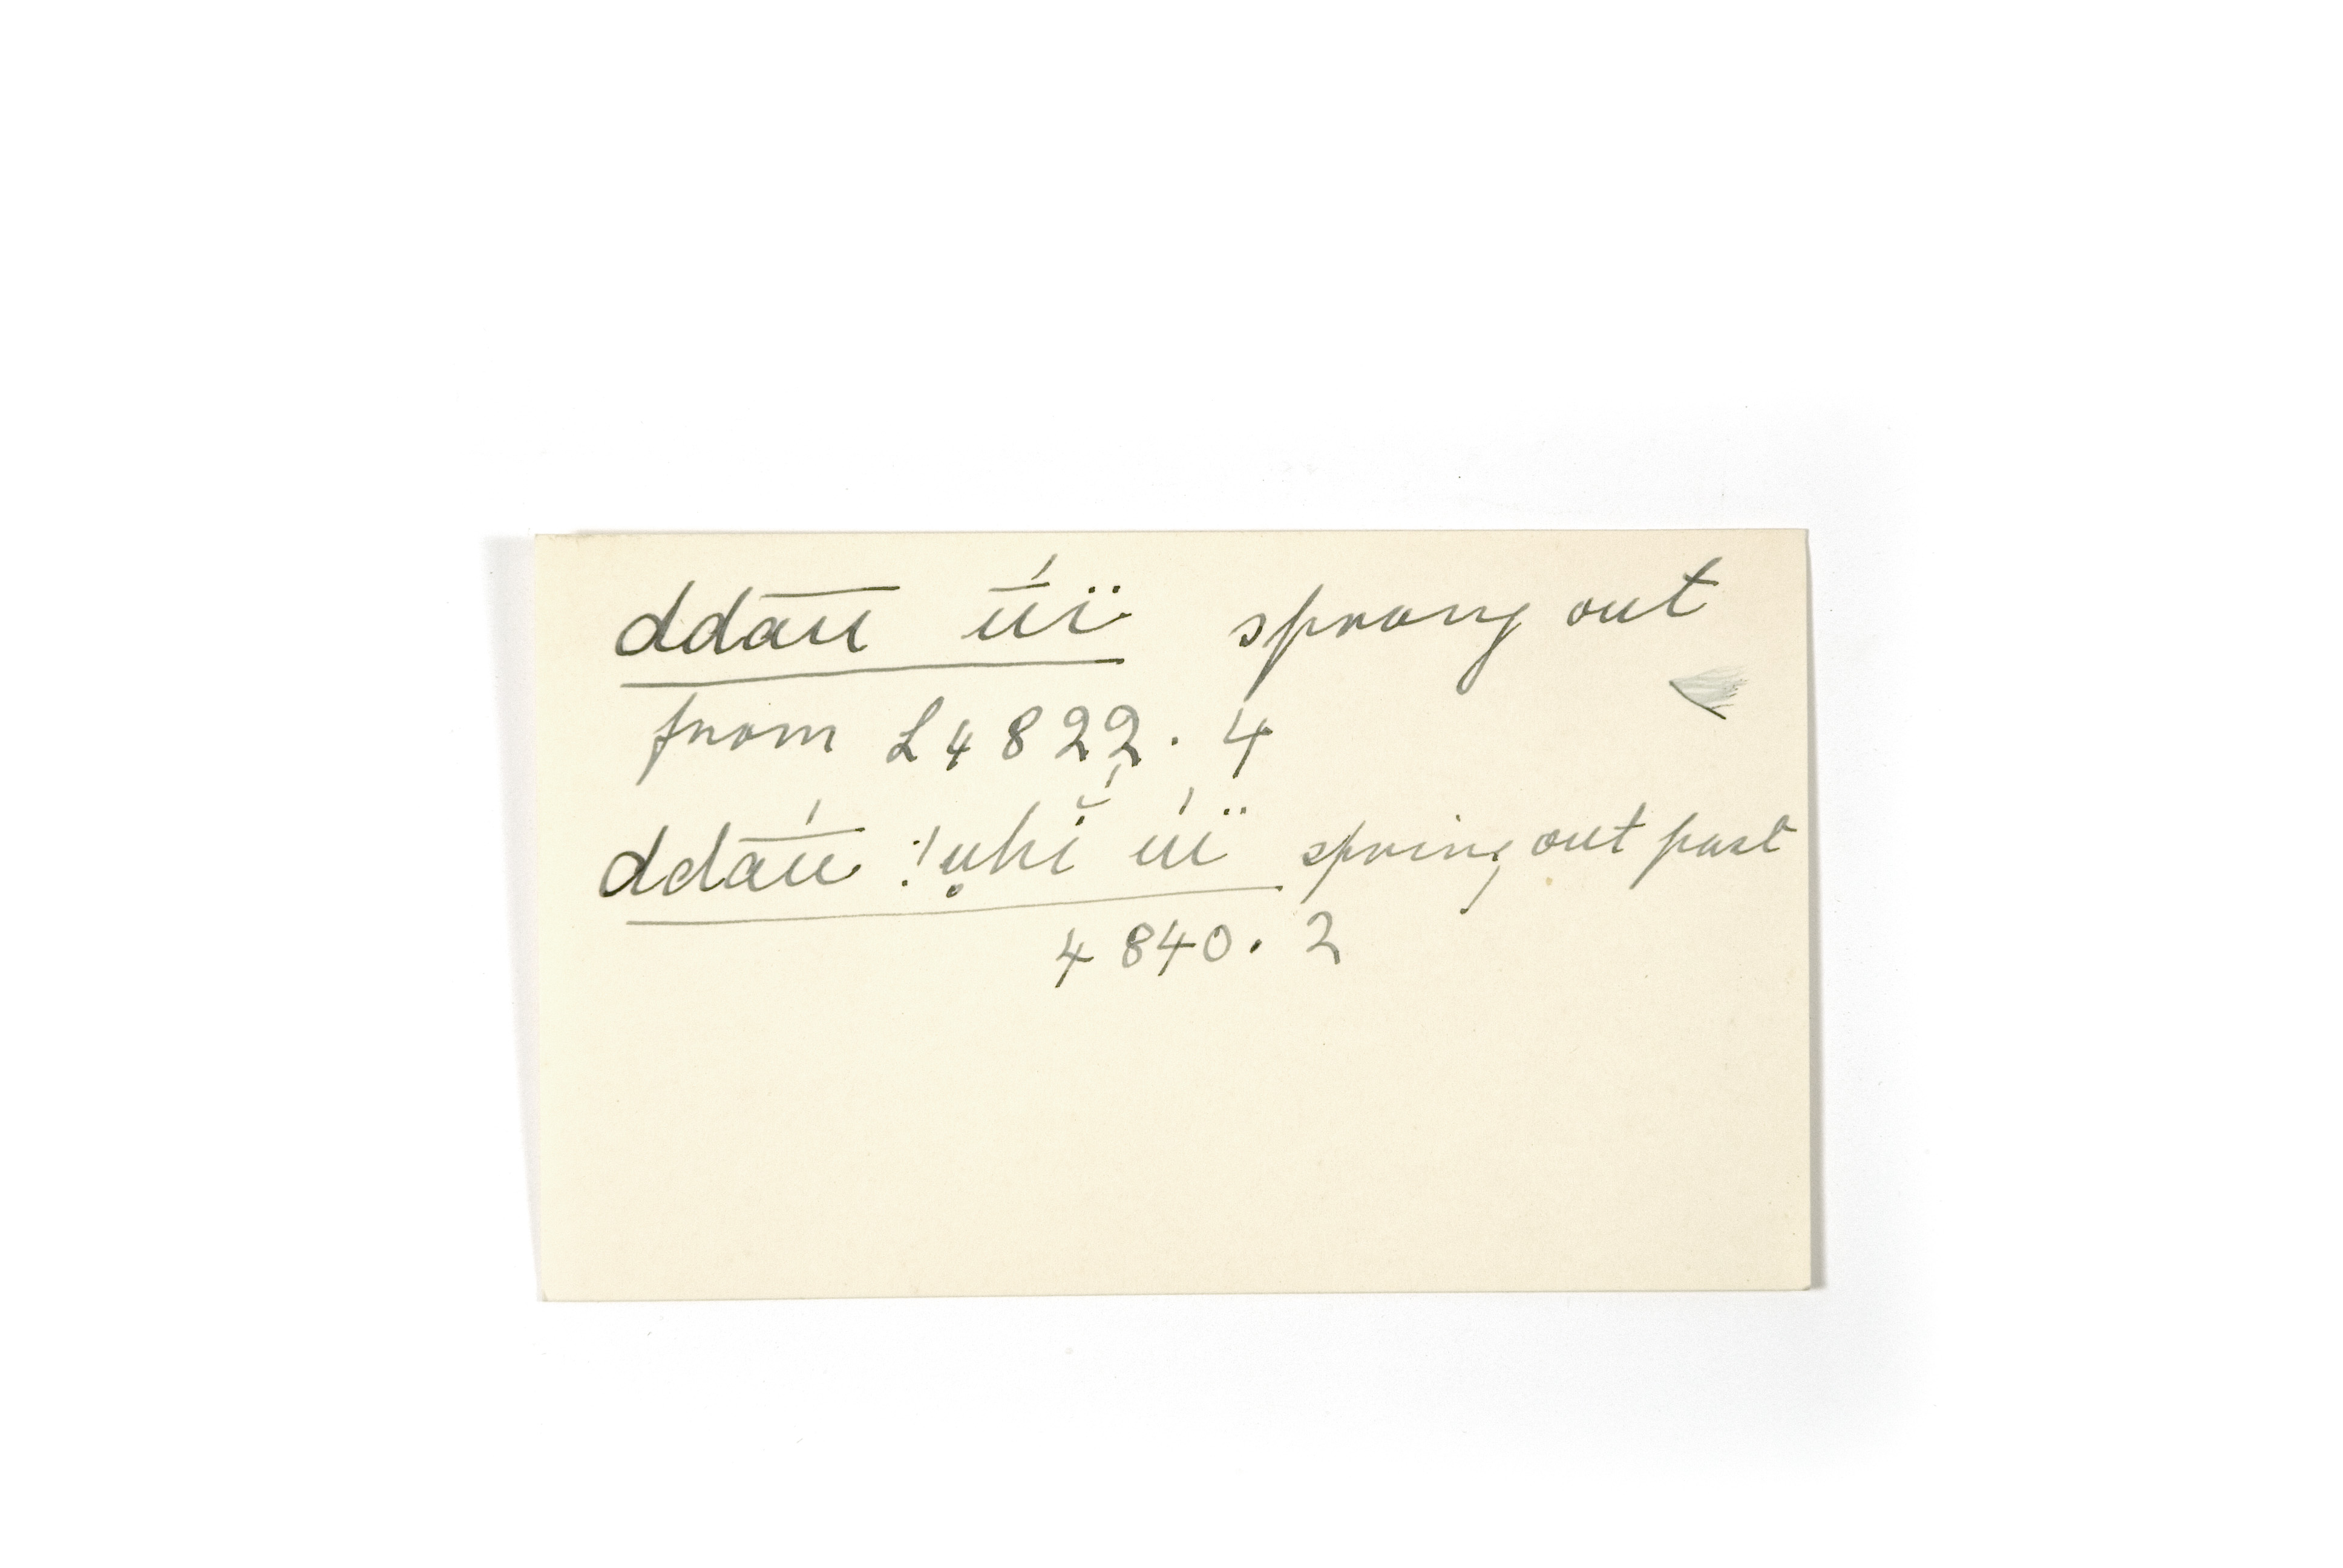 ddau̅ū ū́ï sprang out
from L4822. 4
ddā́ū ⵑu̥hĭ́ úï spring out past
4840. 2